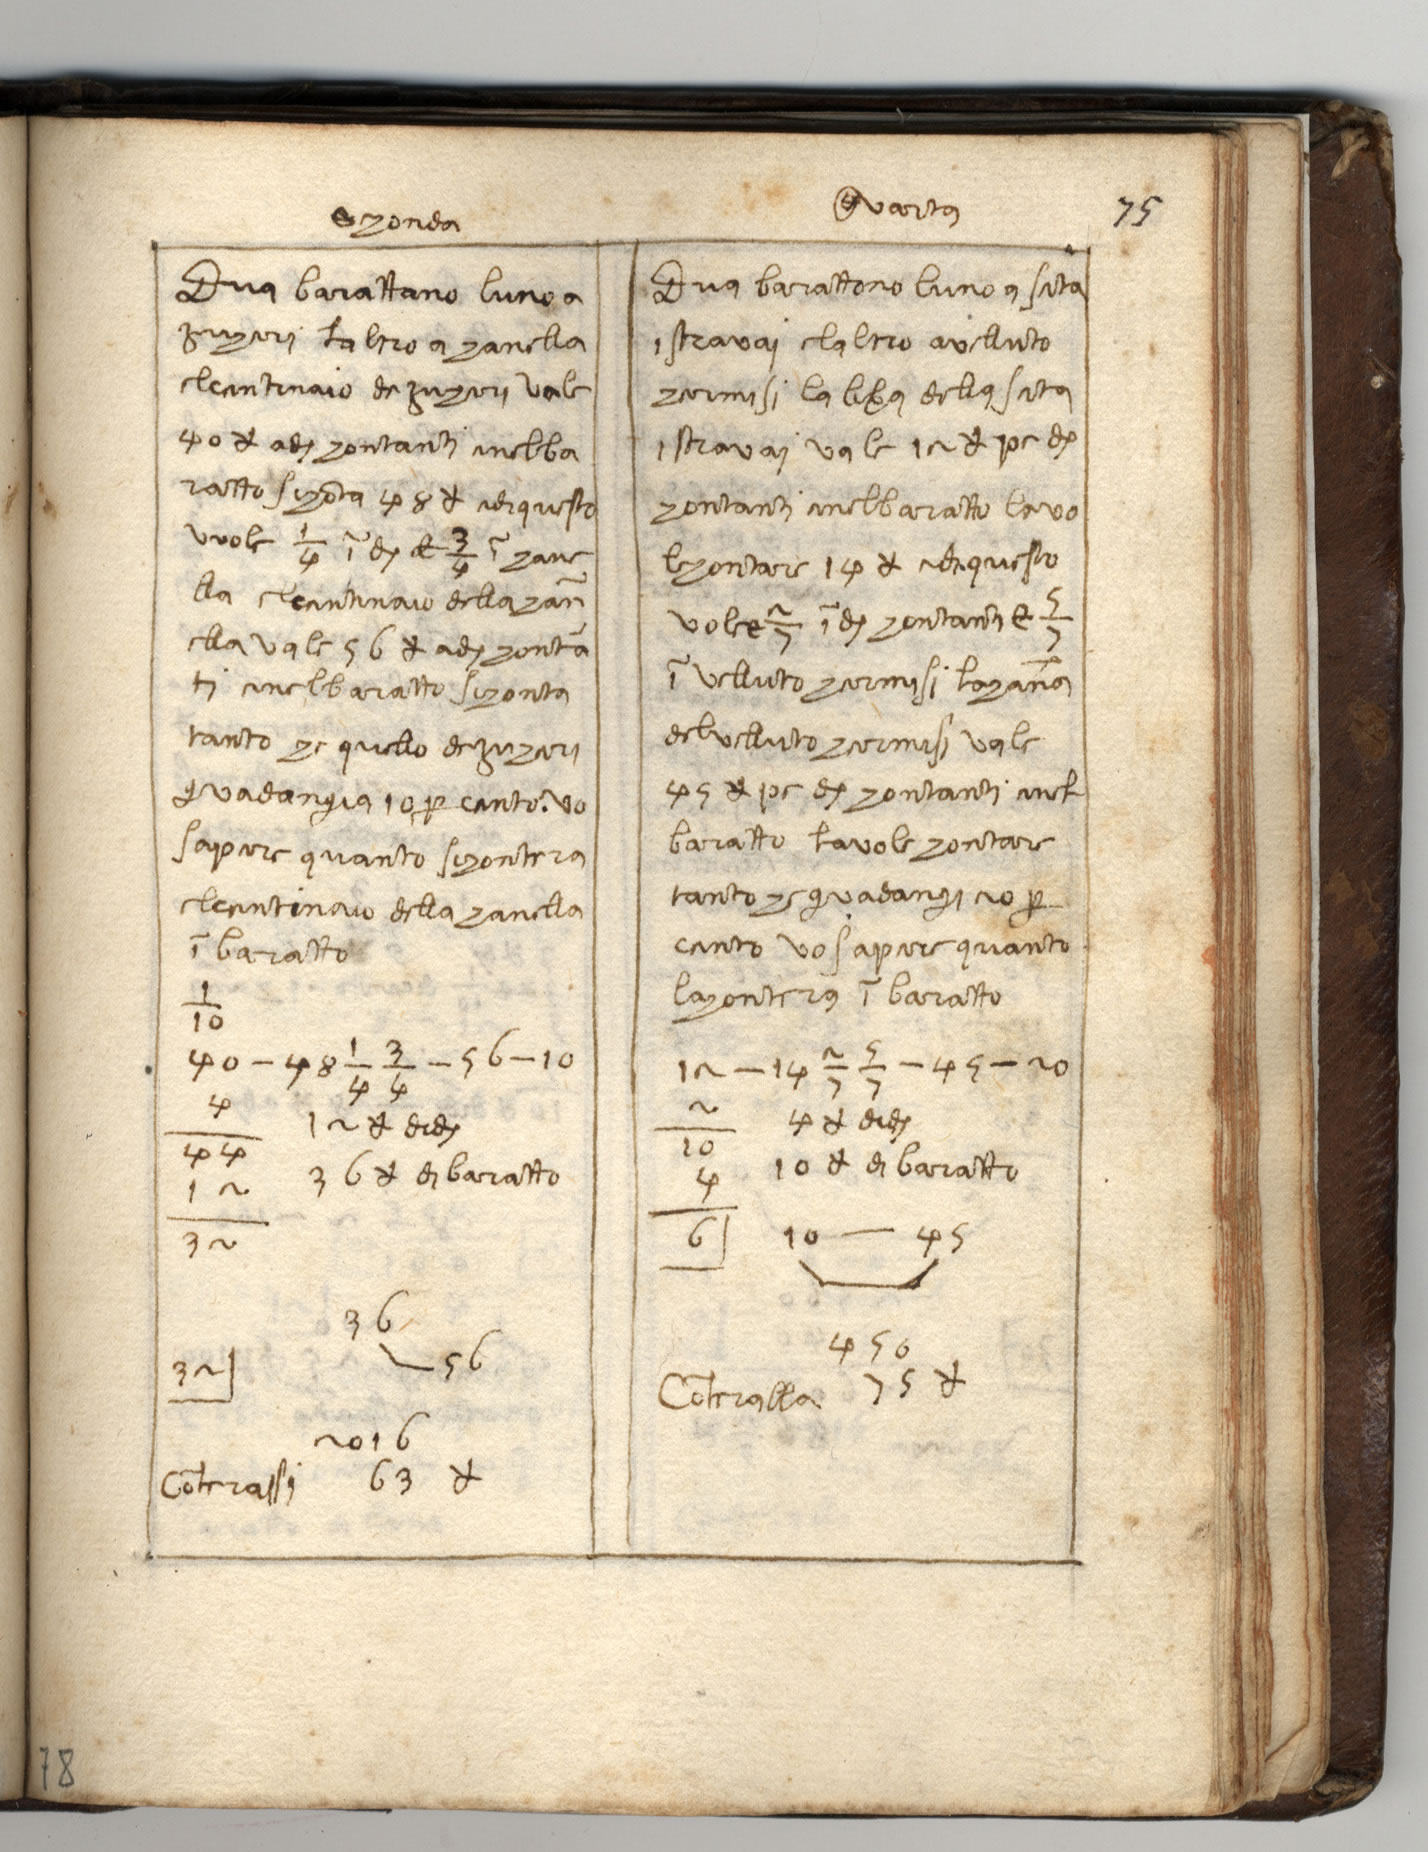 75
Szonda
Dua barattano luno a
zuzeri laltro a zanella
elcentinaio de zuzeri vale
40 ₰ adj zontanti inelba
ratto sizota 48 ₰ ediquesto
vvole 1/4 ĩ dj et 3/4 ĩ zane
lla elcentinaio della zañ
ella vale 56 ₰ adj zontã
ti inelbaratto sizonta
tanto ze quello de zuzeri
gvadangia 10 p cento. vo
sapere quanto sizontera
elcentinaio della zanella
ĩ baratto
1/10
40 – 48 1/4 3/4 – 56 – 10
4
44
12
32
12 ₰ didj
36 ₰ di baratto
36
32 56
2016
Cõterassi 63 ₰
Qvarta
Dua barattono luno a seta
istravai elaltro avelluto
zermisi la libra della seta
istravai vale 12 ₰ pe dj
zontanti inelbaratto lavo
lezontare 14 ₰ ediquesto
vole 2/7 ĩ dj zontanti et 5/7
ĩ velluto zermisi lazanna
delvelluto zermisi vale
45 ₰ pe dj zontanti inel
baratto lavole zontare
tanto ze gvadangi 20 p
cento vo sapere quanto
lazontera ĩ baratto
12 – 14 2/7 5/7 – 45 – 20
2
10
4
6
4 ₰ didj
10 ₰ di baratto
10 — 45
450
Cõteralla 75 ₰
78